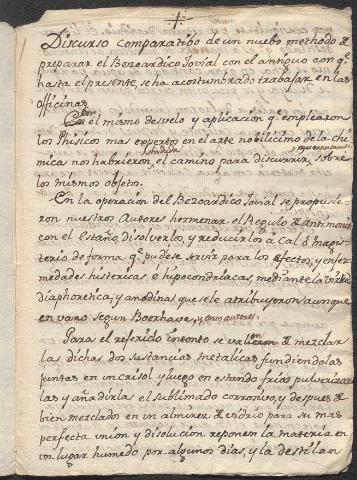 Discurso comparatibo de un nuebo methodo de
preparar el Bezoardico Jovial con el antiguo con q.
hasta el presente, se ha acostumbrado trabajar en las
officinas
Con el mismo desvelo y aplicacion q. emplearon
los Phisicos mas expertos en el arte nobilicimo de la Chi
mica nos habrieron el camino para discurrir sobre
los mismos objetos.
En la operacion del Bezoardico Jovial se propusie-
ron nuestros Autores hermanar el Regulo de Antimonio
con el Estaño, disolverlo, y reducirlo a Cal ô magis-
terio de forma q. pudiese servir para los efectos, y enfer
medades histericas e hipocondriacas, mediante la virtud
diaphoretica, y anodina que se le atribuyeron aunque
en vano segun Boerhave, y otros autores.
Para el referido intento se valieron de mezclar
las dichas dos sustancias metalicas fundiendolas
juntas en un crisol y luego en estando frias pulverizar
las y añadirlas el sublimado corrosivo, y despues de
bien mezclados en un almirez de vidrio para su mas
perfecta union y disolucion reponen la materia en
un lugar humedo por algunos dias, y la destilan